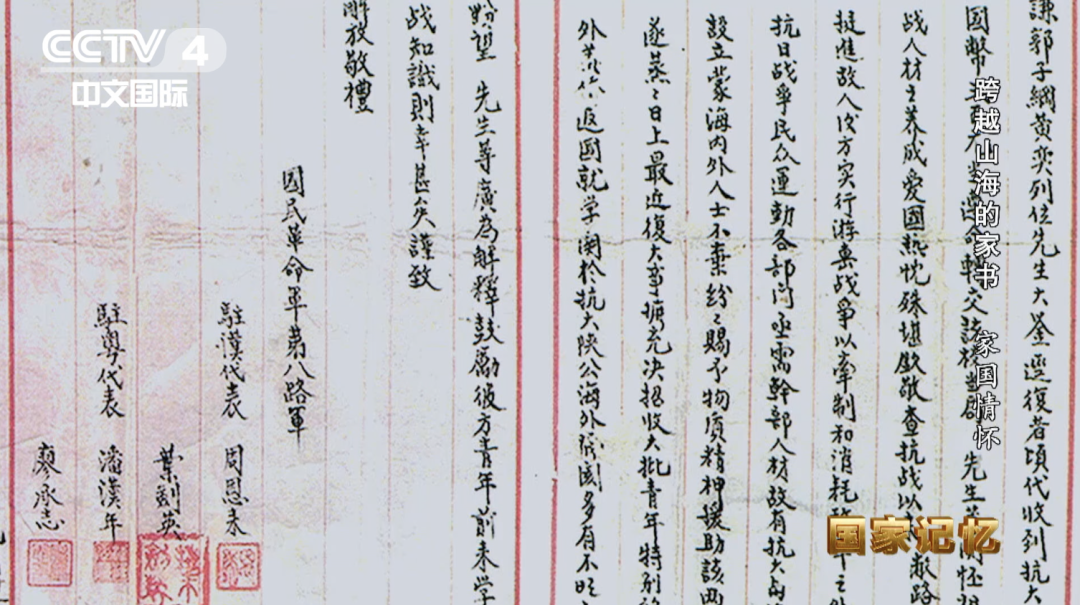 CCTV 4
中文国际
謙郭子綱黄奕列位先生大鉴逕復者頃代收到抗大
國幣 轉交該校 先生
战人材之养成爱國热忱殊堪欽敬查抗战以 敵路
挺進敌人後方实行游击战爭以牽制和消耗
抗日战爭民众運動各部门亟需幹部人材故有抗大
設立蒙海内外人士不棄纷々赐予物质精神援助該两
遂蒸々日上最近復大事擴充决招收大批青年特别
外 返國就学関於抗大陕公海外 多有不
盼望 先生等廣為解释鼓励彼方青年前来学
战知識則幸甚矣謹致
解放敬禮
國民革命軍第八路軍
駐漢代表 周恩来
葉剑英
駐粤代表 潘漢年
廖承志
跨越山海的家书 家国情怀
国家记忆